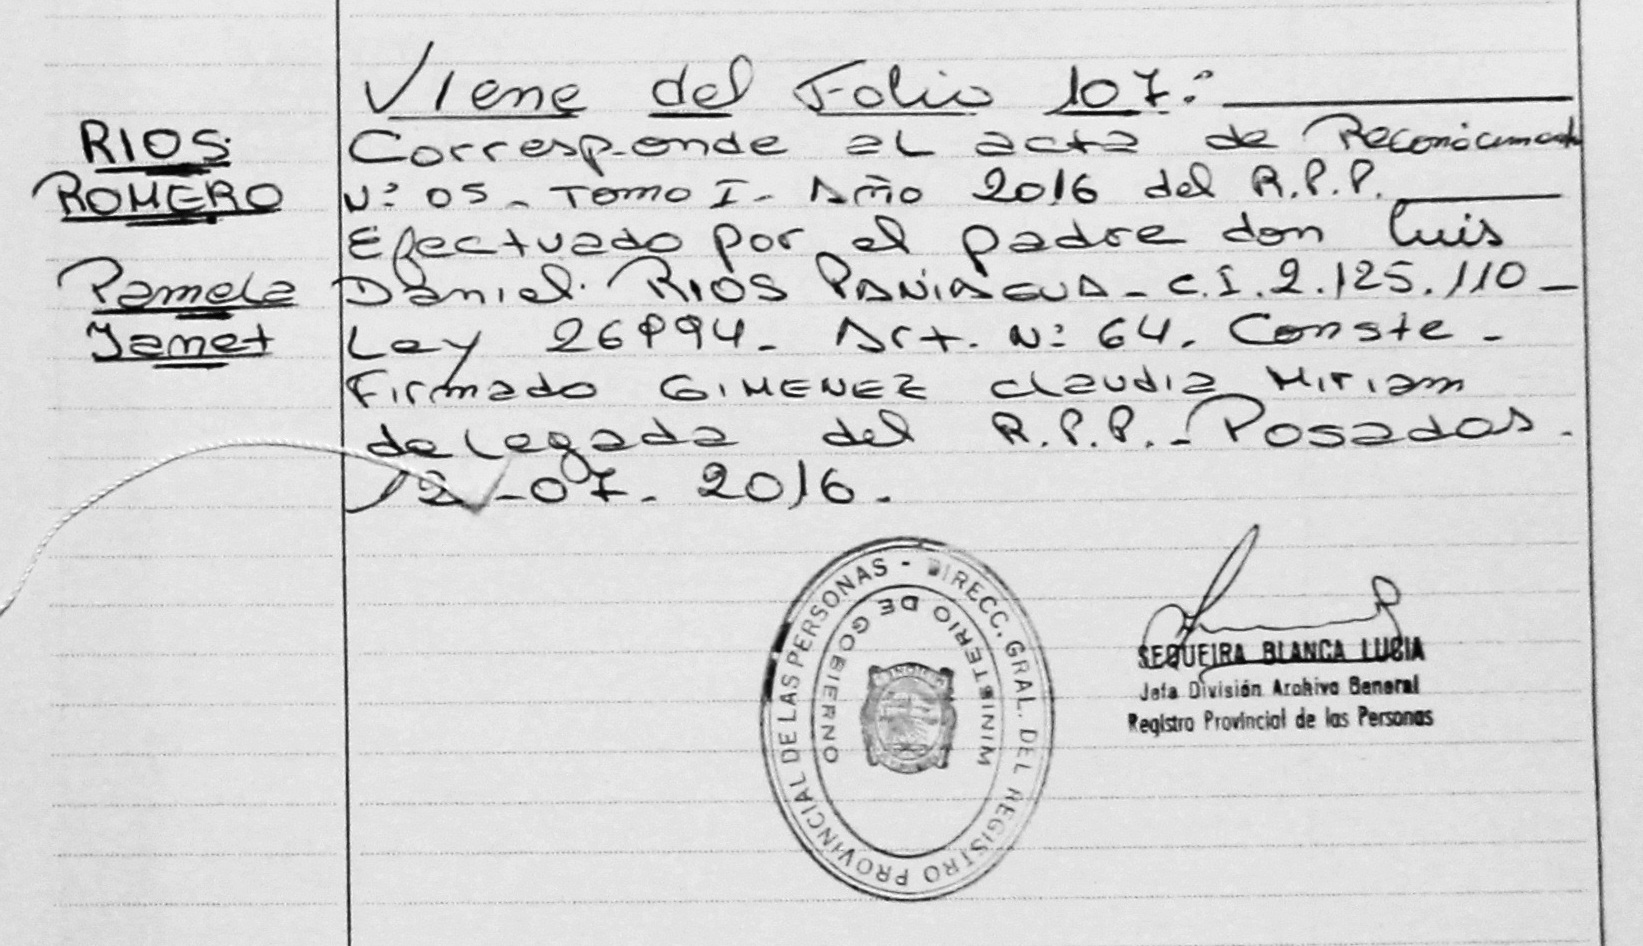 RIOS
ROMERO
Pamela
Janet
Viene del Folio 107:
Corresponde al acta de Reconocimiento
N° 05 - Tomo I - Año 2016 del R.P.P.
Efectuado por el padre don Luis
Daniel RIOS PANIAGUA - C.I. 2.125.110 -
Ley 26994 - Art. N° 64. Conste -
Firmado GIMENEZ Claudia Miriam
delegada del R.P.P. - Posadas.
12-07-2016.
DIRECC. GRAL. DEL REGISTRO PROVINCIAL DE LAS PERSONAS -
MINISTERIO DE GOBIERNO
SEQUEIRA BLANCA LUCIA
Jefa División Archivo General
Registro Provincial de las Personas